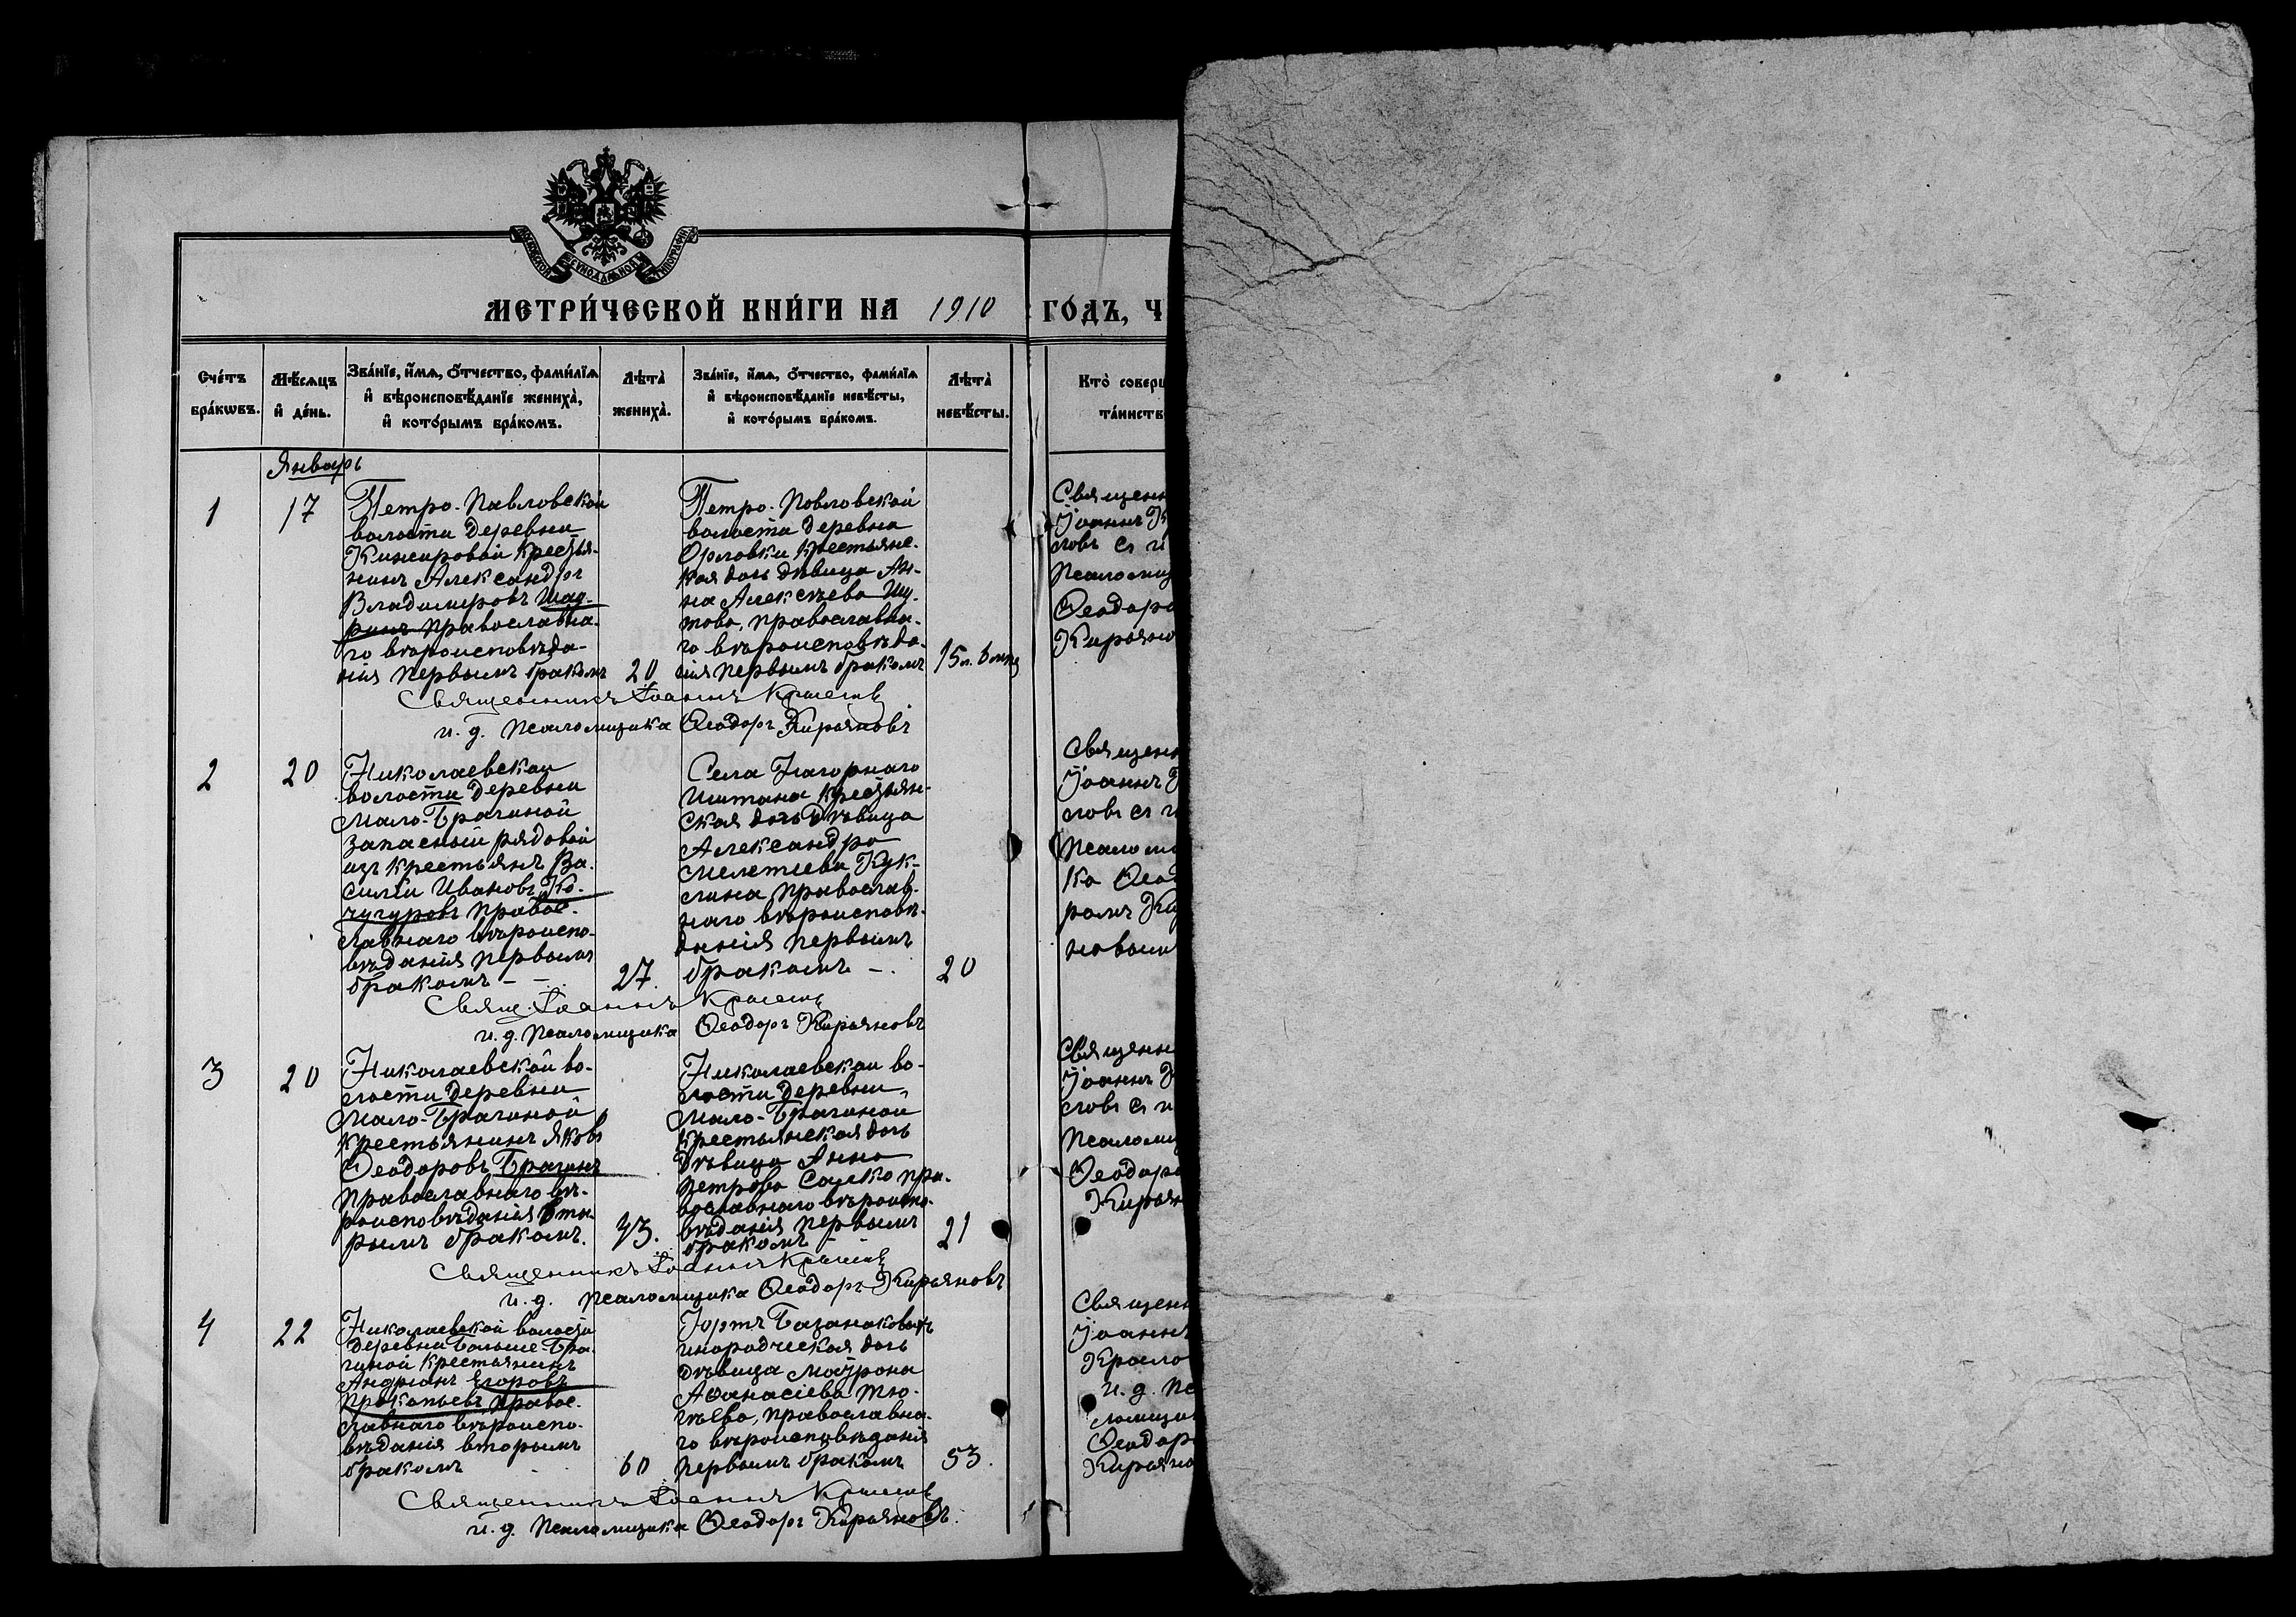 МОСКОВСКОЙ СѴНОДАЛЬНОЙ ТИПОГРАФІИ
МЕТРИ́ЧЕСКОЙ КНИ́ГИ НА 1910 ГО́ДЪ, Ч
Сче́тъ бра́кѡвъ.
Мѣ́сѧцъ и҆ де́нь.
Зва́нїе, и҆́мѧ, ѻ҆́тчество, фами́лїѧ
и҆ вѣроисповѣ́данїе жениха̀,
и҆ кото́рымъ бра́комъ.
Лѣта̀
жениха̀.
Зва́нїе, и҆́мѧ, ѻ҆́тчество, фами́лїѧ
и҆ вѣроисповѣ́данїе невѣ́сты,
и҆ кото́рымъ бра́комъ.
Лѣта̀
невѣ́сты.
Кто̀ соверш
та́инств
Январь
1
17
Петро-Павловской
волости деревни
крестья-
нинъ Александръ
Владимировъ Шад-
ринъ православна-
го вѣроисповѣда-
нія первымъ бракомъ
20
Петро-Павловской
волости деревни
Орловки крестьянс-
кая дочь дѣвица Ан-
на Алексѣева Шу-
това, православна-
го вѣроисповѣда-
нія первымъ бракомъ
15 л.
Священн
Іоаннъ К
ловъ съ и
Псаломщ
Ѳеодоро
Кирьяно
Священникъ Іоаннъ
и. д. Псаломщика Ѳеодоръ Кирьяновъ
2
20
Николаевской
волости деревни
Мало-Брагиной
запасный рядовой
изъ крестьянъ Ва-
силій Ивановъ Ко-
чугуровъ правос-
лавнаго вѣроиспо-
вѣданія первымъ
бракомъ – –.
27.
Села Нагорнаго
Иштана крестьян-
ская дочь дѣвица
Александра
Мелетіева Кук-
лина православ-
наго вѣроисповѣ-
данія первымъ
бракомъ –.
20
Священн
Іоаннъ К
ловъ съ и
Псаломщ
ка Ѳеод
ромъ Ки
новымъ
Свящ. Іоаннъ
и. д. Псаломщика Ѳеодоръ Кирьяновъ
3
20
Николаевской во-
лости деревни
Мало-Брагиной
крестьянинъ Яковъ
Ѳеодоровъ Брагинъ
православнаго вѣ-
роисповѣданія вто-
рымъ бракомъ.
43.
Николаевской во-
лости деревни
Мало-Брагиной
крестьянская дочь
дѣвица Анна
Петрова пра-
вославнаго вѣроиспо-
вѣданія первымъ
бракомъ –
21
Священн
Іоаннъ К
ловъ съ и
Псаломщ
Ѳеодоро
Кирьян
Священникъ Іоаннъ
и. д. Псаломщика Ѳеодоръ Кирьяновъ
4
22
Николаевской волости
деревни Больше-Бра-
гиной крестьянинъ
Андріанъ Егоровъ
Прокопьевъ правос-
лавнаго вѣроиспо-
вѣданія вторымъ
бракомъ
60
Юртъ
инородческая дочь
дѣвица Маѵрона
Аѳанасіева Тю-
православна-
го вѣроисповѣданія
первымъ бракомъ
53.
Священн
Іоаннъ
и. д. Пс
ломщи
Ѳеодор
Кирьяно
Священникъ Іоаннъ
и. д. Псаломщика Ѳеодоръ Кирьяновъ.